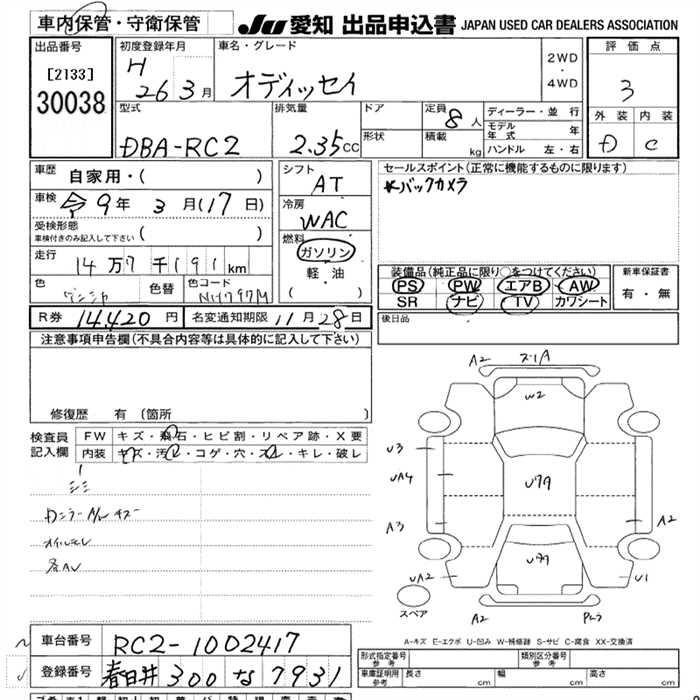 車内保管・守衛保管
JU 愛知 出品申込書 JAPAN USED CAR DEALERS ASSOCIATION
出品番号
[2133]
30038
初度登録年月
H
26 3月
車名・グレード
オディッセイ
2WD
・
4WD
評価点
3
外装 内装
D C
型式
DBA-RC2
排気量
2.35cc
ドア
形状
定員 8人
積載 kg
ディーラー・並行
モデル年式 年
ハンドル 左・右
車歴 自家用・( )
車検 令9年 3月(17日)
受検形態
車検付きのみ記入して下さい ( )
走行 14万7千191km
色
色替
色コード
シフト
AT
冷房
WAC
燃料
ガソリン
軽油
( )
セールスポイント(正常に機能するものに限ります)
*バックカメラ
装備品(純正品に限り○をつけてください)
PS PW エアB AW
SR ナビ TV カワシート
新車保証書
有・無
R券 14,420円 名変通知期限 11月28日
後日品
注意事項申告欄(不具合内容等は具体的に記入して下さい)
修復歴 有(箇所 )
検査員記入欄
FW キズ・飛石・ヒビ割・リペア跡・X要
内装 キズ・汚レ・コゲ・穴・スレ・キレ・破レ
A2
W2
U3
UA4
A3
A2
UA2
U1
A2
スペア
A-キズ E-エクボ U-凹み W-補修跡 S-サビ C-腐食 XX-交換済
車台番号 RC2-1002417
登録番号 春日井 300 な 7931
形式指定番号
参考
類別区分番号
参考
車庫証明用
参考
長さ cm 幅 cm 高さ cm